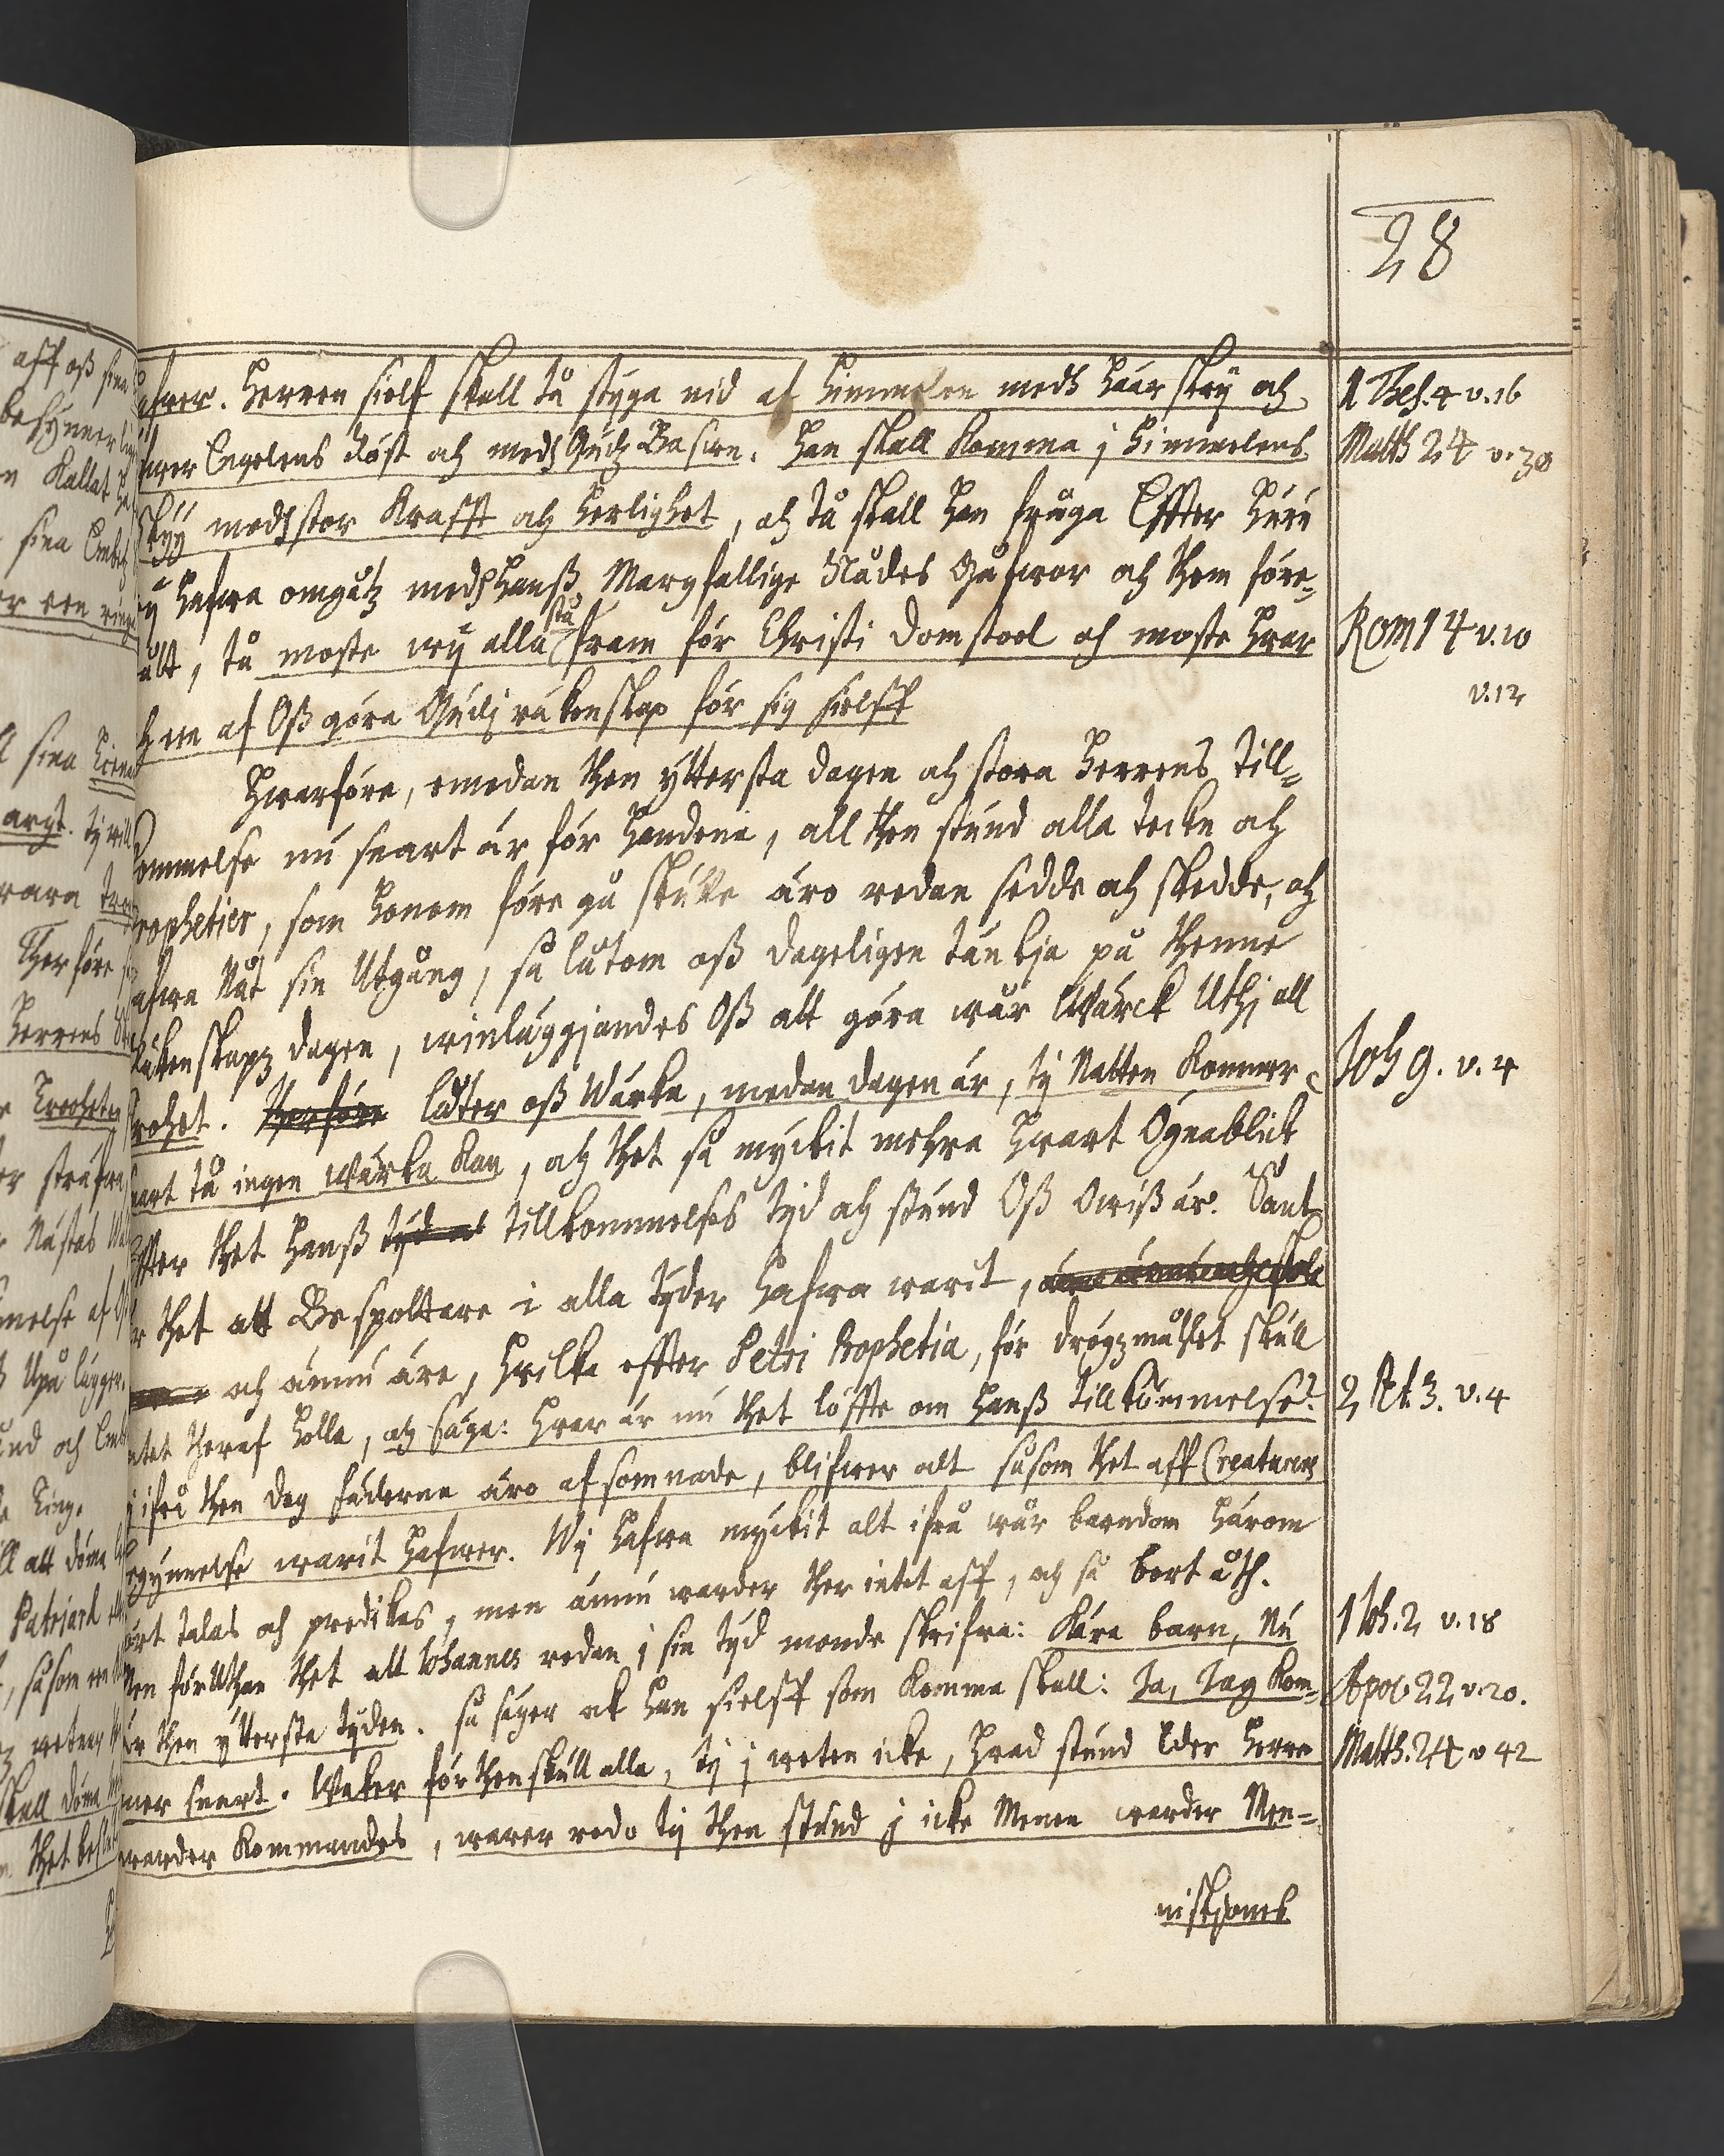 28
afwer. Herren sielf skall tå styga nid af himmelen medh häär skry och
fwer Engelens röst och medh Gudz Basun. Han skall Komma j himmelens
skyy medh stor Krafft och herlighet, och tå skall han fråga Effter huru
wy hafwa omgåtz medh hanss Margfallige Nådes Gåfwor och them före-
stå
ält, tå moste wy alla fram för Christi domstool och moste hwar
och een af Oss göra Gudj räkenskap för sig sielff
Hwarföre, emedan then yttersta dagen och stora Herrens till-
kommelse nu snart är för handene, all then stund alla tecken och
Prophetier, som honom föregå skulle äro redan sedde och skedde, och
hafwa Nåt sin Utgång, så låtom oss dageligen tänkja på thenne
Räkenskapz dagen, winläggjandes Oss att göra wår Wärck Uthj all
trohet. Therföre låter oss Wärka, medan dagen är, ty Natten Kommer
snart tå ingen wärka Kan, och thet så myckit mehra hwart Ögnablick
Effter thet hanss tyd och tillkommelses tyd och stund Oss Owiss är. Sant
är thet att Bespottare i alla tyder hafwa warit,
och ännu äre, hwilka effter Petri Prophetia, för drögzmåhlet skull
intet theraf holla, och säya: hwar är nu thet löffte om hanss tillkommelse?
ty ifrå then dag fäderne äro afsomnade, blifwer alt såsom thet aff Creaturens
begynnelse warit hafwer. Wy hafwa myckit alt ifrå wår barndom härom
hört talas och predikas, men ännu warder ther intet aff, och så bort åth.
Men förUthan thet att Iohannes redan i sin tyd monde skrifwa: Kära barn, Nu
är then ytterste tyden. så säger ock han sielff som Komma skall: Ja, Jag Kom-
mer snart. Waker för thenskull alla, ty j weten icke, hwad stund Eder Herre
warder Kommandes, warer redo ty then stund j icke Menen warder Men-
niskjones
1 Thes. 4 v. 16
Matth 24 v. 30
Rom 14 v. 10
v. 12
Joh 9. v. 4
2 Pet. 3. v. 4
1 Ioh. 2 v. 18
Apoc 22 v. 20.
Matth. 24 v 42